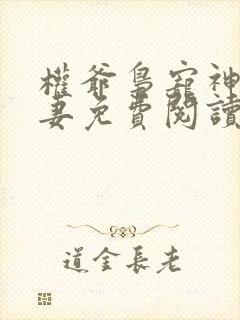 權爺梟寵神
妻免費閱讀
道金長老